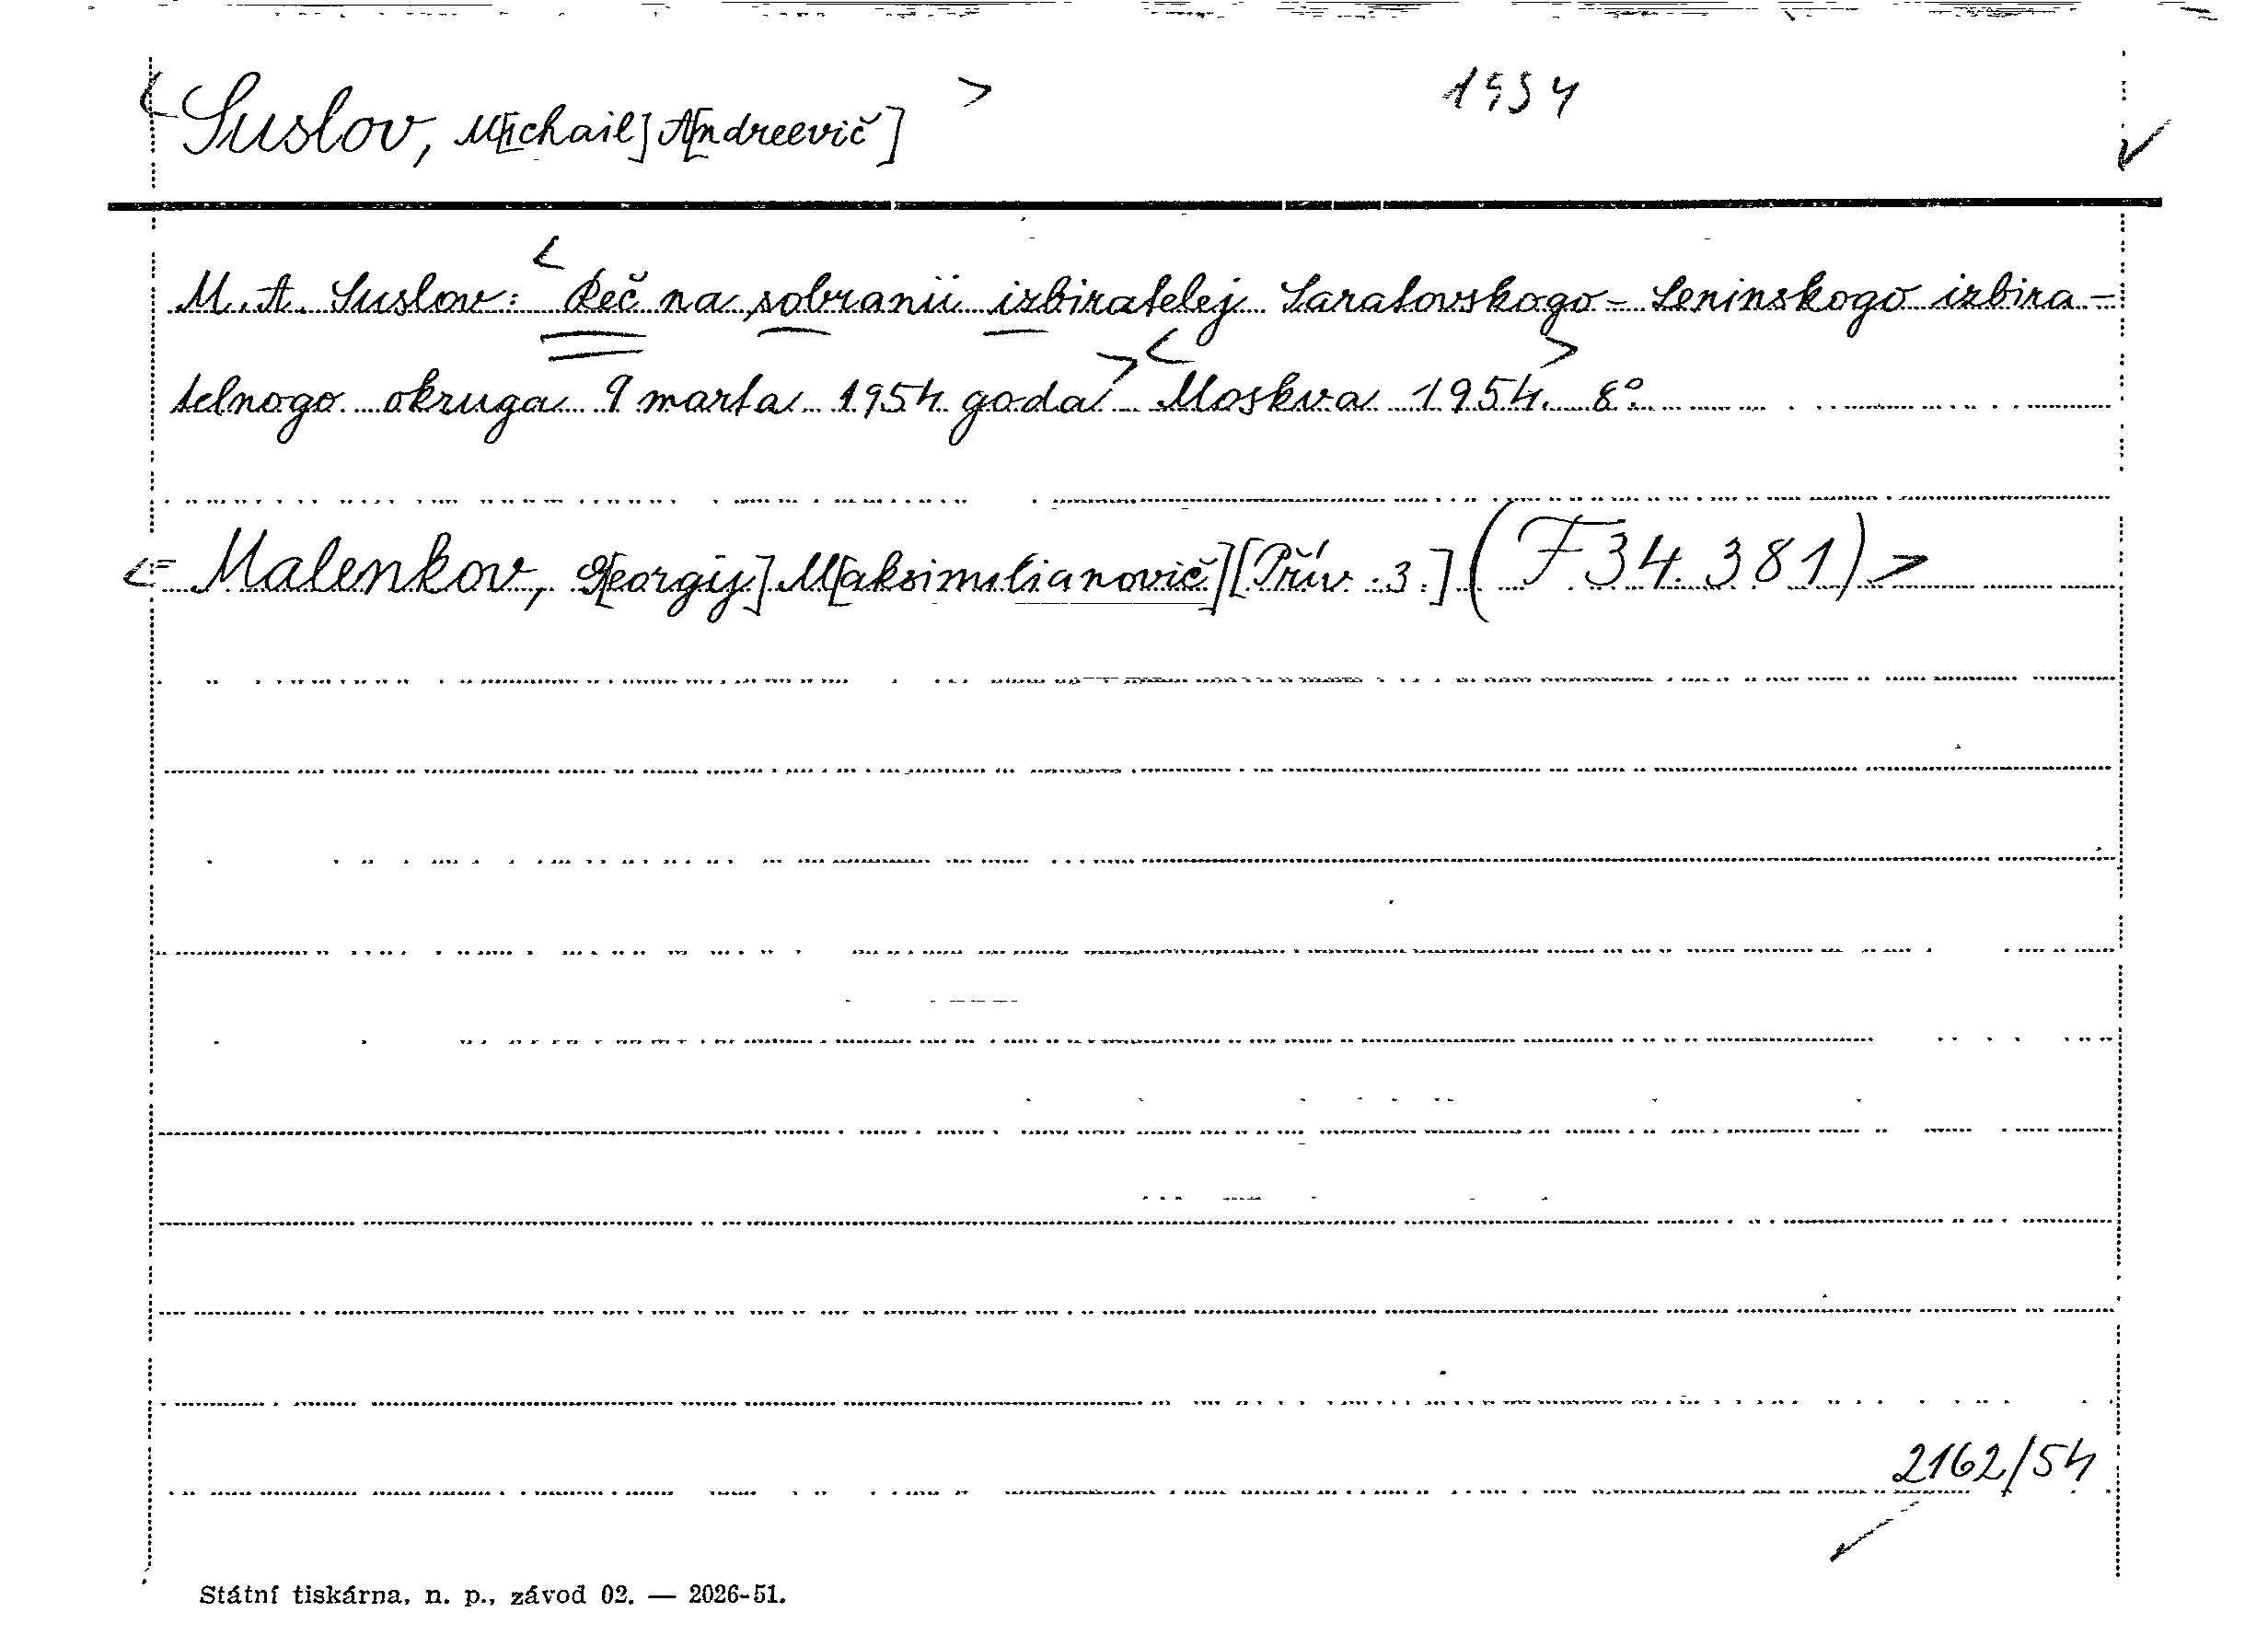 < Suslov, M[ichail] A[ndreevič] > 1954
M. A. Suslov: < Reč na sobranii izbiratelej Saratovskogo-Leninskogo izbira-
telnogo okruga 9 marta 1954 goda > < Moskva 1954. > 8°
< Malenkov, G[eorgij] M[aksimilianovič] [Přív. 3.] (F 34.381) >
2162/54
Státní tiskárna, n. p., závod 02. — 2026-51.